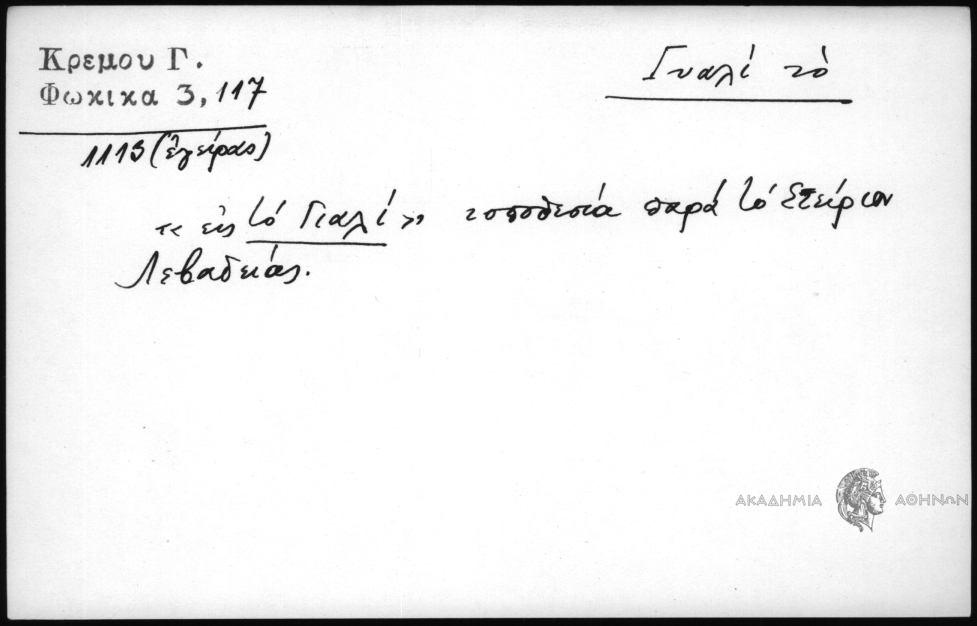 Κρεμου Γ.
Φωκικα 3, 117
Γυαλί τὸ
1113 (ἔγειρας)
«εἰς τὸ Γιαλί» τοποθεσία παρά τὸ Στείριον
Λεβαδειάς.
ΑΚΑΔΗΜΙΑ ΑΘΗΝΩΝ